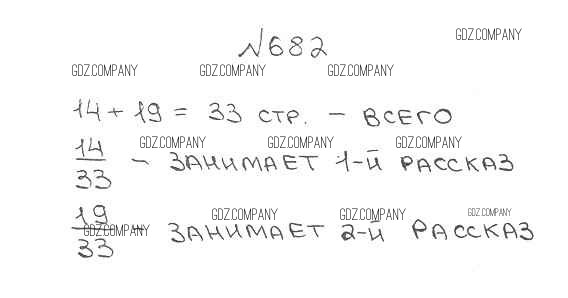 №682
GDZ.COMPANY
GDZ.COMPANY GDZ.COMPANY GDZ.COMPANY
14 + 19 = 33 СТР. – ВСЕГО
GDZ.COMPANY GDZ.COMPANY GDZ.COMPANY
14/33 – ЗАНИМАЕТ 1-й РАССКАЗ
GDZ.COMPANY GDZ.COMPANY GDZ.COMPANY
GDZ.COMPANY
19/33 – ЗАНИМАЕТ 2-й РАССКАЗ